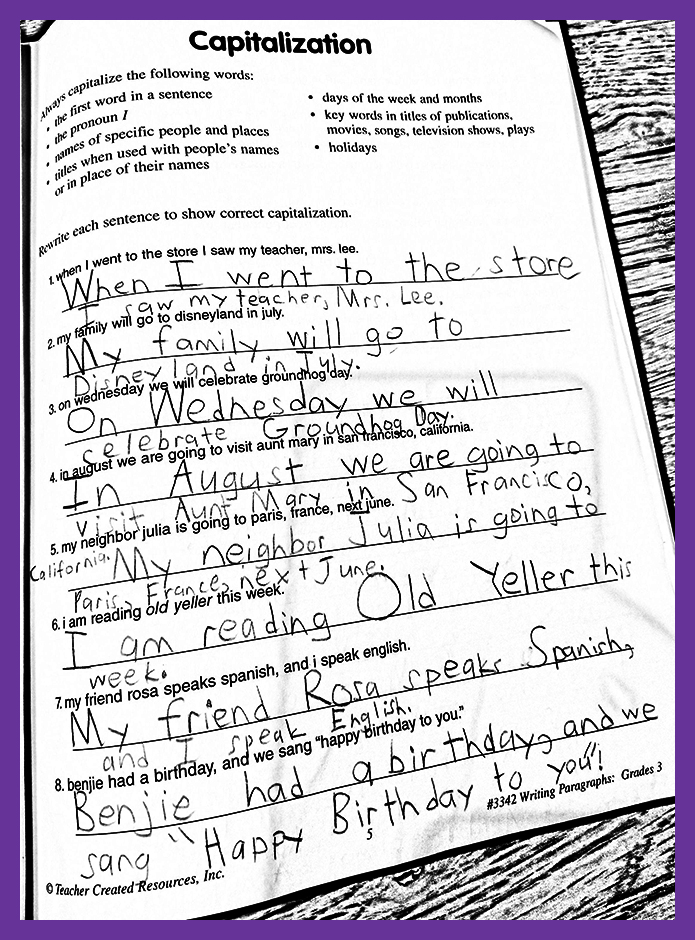 Capitalization
Always capitalize the following words:
• the first word in a sentence
• the pronoun I
• names of specific people and places
• titles when used with people's names
or in place of their names
• days of the week and months
• key words in titles of publications,
movies, songs, television shows, plays
• holidays
Rewrite each sentence to show correct capitalization.
1. when I went to the store I saw my teacher, mrs. lee.
When I went to the store
I saw my teacher, Mrs. Lee.
2. my family will go to disneyland in july.
My family will go to
Disneyland in July.
3. on wednesday we will celebrate groundhog day.
On Wednesday we will
celebrate Groundhog Day.
4. in august we are going to visit aunt mary in san francisco, california.
In August we are going to
visit Aunt Mary in San Francisco,
California.
5. my neighbor julia is going to paris, france, next june.
My neighbor Julia is going to
Paris, France, next June.
6. i am reading old yeller this week.
I am reading Old Yeller this
week.
7. my friend rosa speaks spanish, and i speak english.
My friend Rosa speaks Spanish,
and I speak English.
8. benjie had a birthday, and we sang "happy birthday to you."
Benjie had a birthday, and we
sang "Happy Birthday to you"!
©Teacher Created Resources, Inc.
5
#3342 Writing Paragraphs: Grades 3